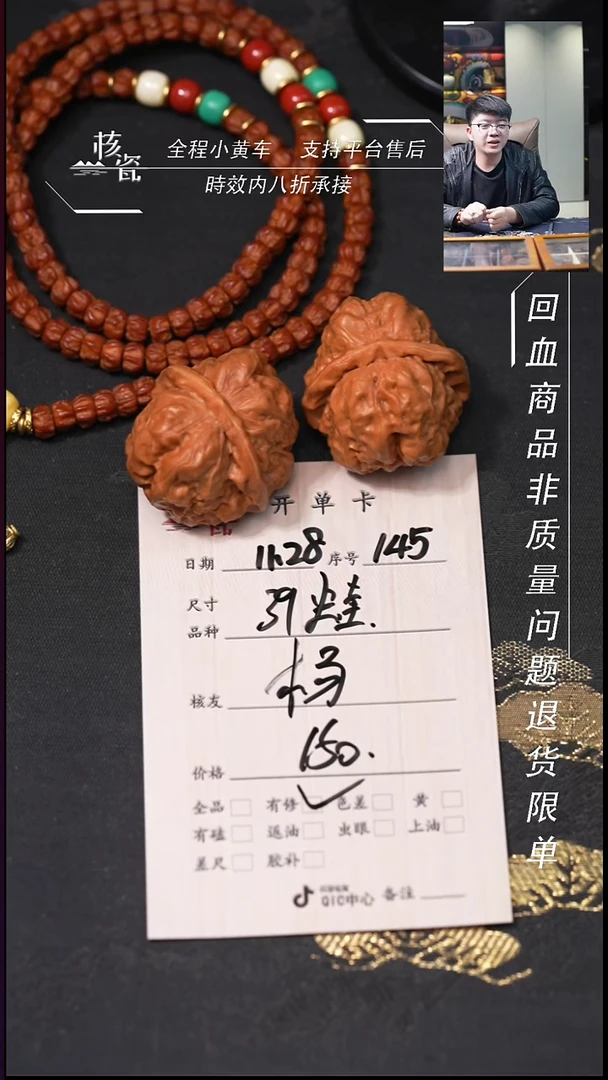 核瓷
全程小黄车 支持平台售后
時效内八折承接
回血商品非质量问题退货限单
开单卡
日期 11.28 序号 145
尺寸 39
品种
核友 杨
价格 150.
全品 有修 色差 黄
有磕 返油 虫眼 上油
差尺 胶补
QIC中心 备注